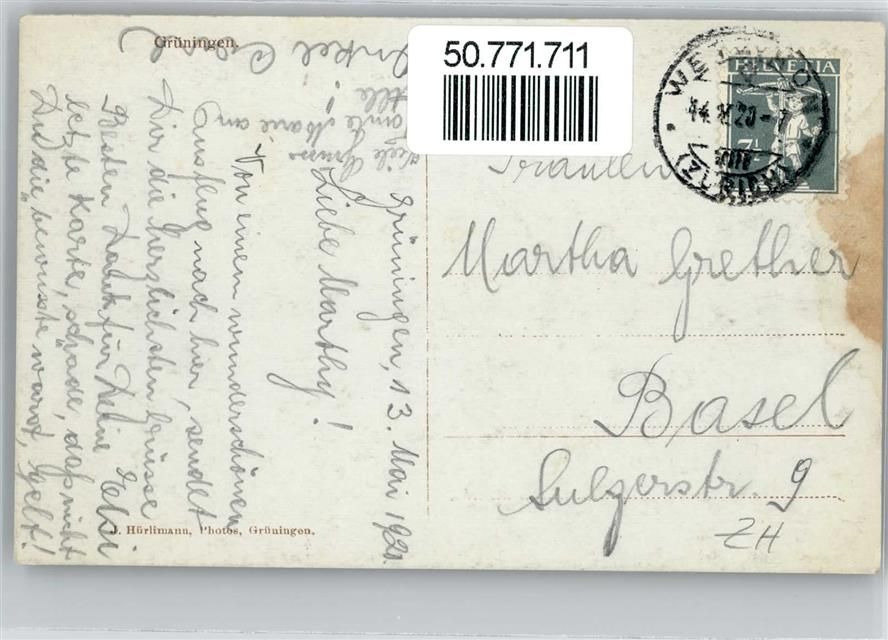 Grüningen.
50.771.711
WETZIKON
(ZÜRICH)
VIII
HELVETIA
7½
Grüningen, 13. Mai 1920.
Liebe Marthy!
Von einem wunderschönen
Ausflug nach hier, sendet
Dir die herzlichsten Grüsse
Besten Dank für Deine
letzte Karte, schade, dass nicht
Du die "bewusste" warst, gelt!
Onkel
Viele Grüsse
Tante Marie an
Alle!
Fräulein
Martha Grether
Basel
Sulzerstr. 9
ZH
J. Hürlimann, Photos, Grüningen.